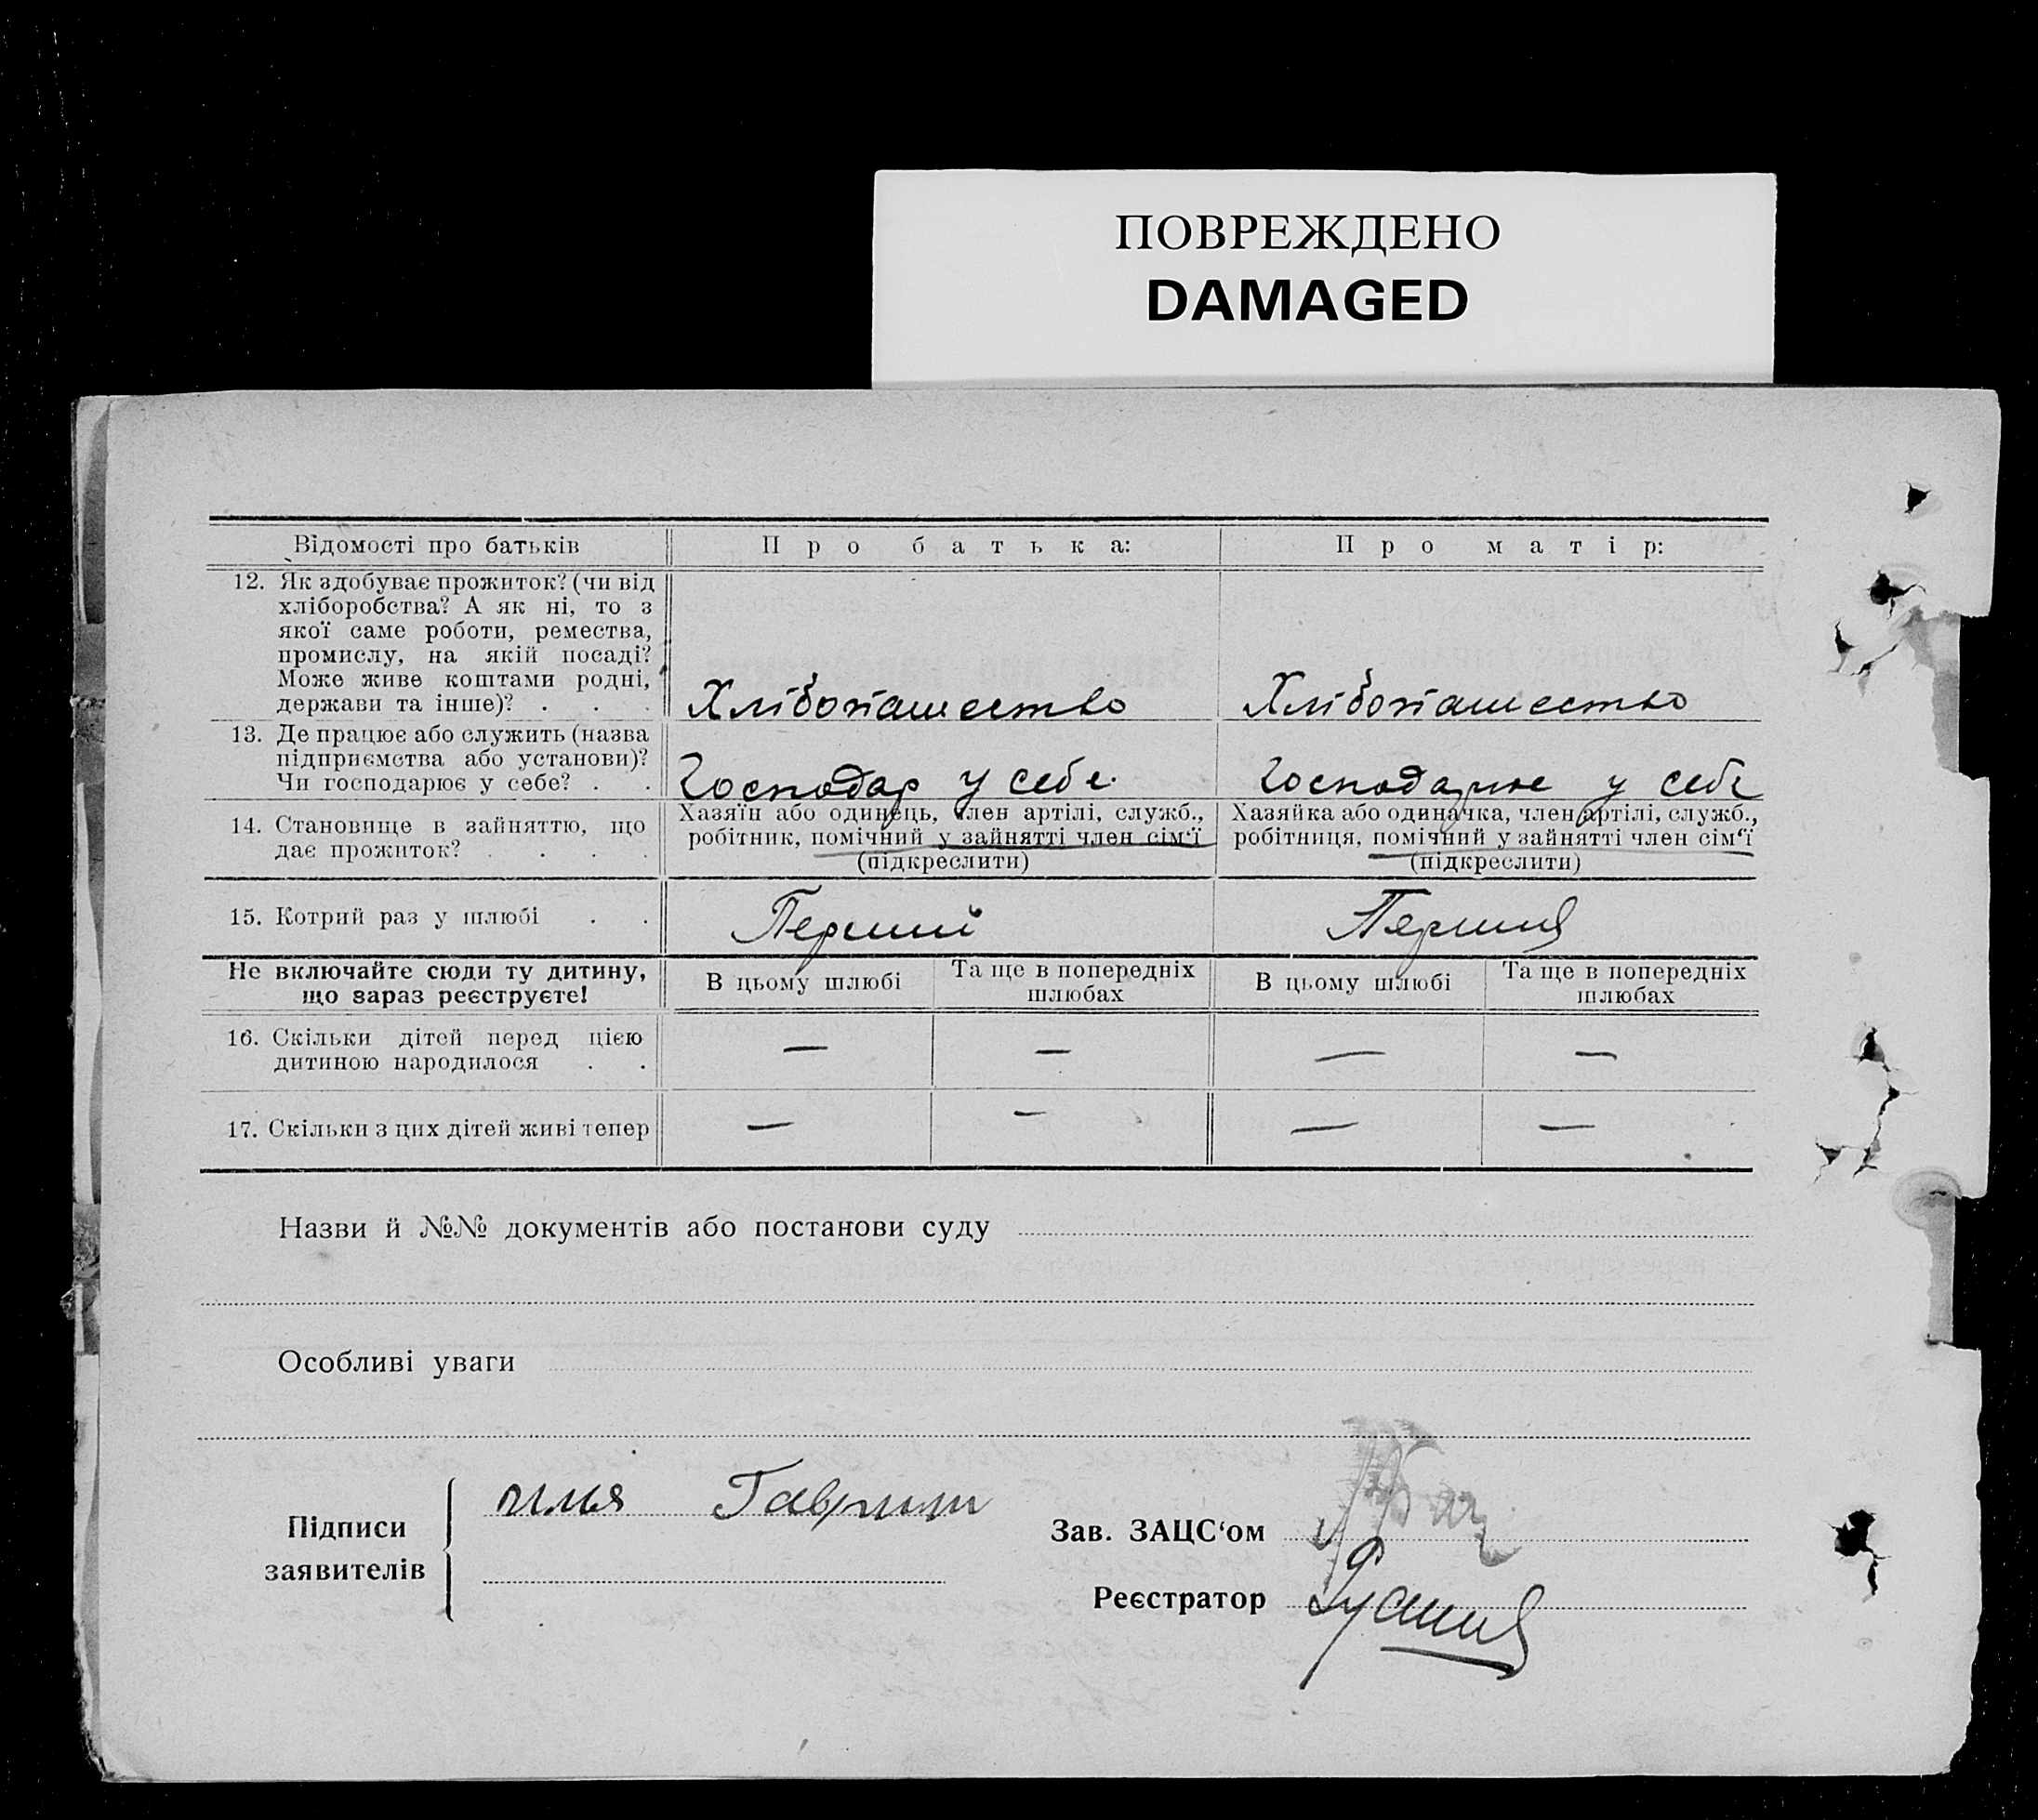 ПОВРЕЖДЕНО
DAMAGED
Відомості про батьків
Про батька:
Про матір:
12. Як здобуває прожиток? (чи від
хліборобства? А як ні, то з
якої саме роботи, ремества,
промислу, на якій посаді?
Може живе коштами родні,
держави та інше)? . . .
Хлібопашество
Хлібопашество
13. Де працює або служить (назва
підприємства або установи)?
Чи господарює у себе? . .
Господар у себе.
Господарює у себе
14. Становище в зайняттю, що
дає прожиток? . . . .
Хазяїн або одинець, член артілі, служб.,
робітник, помічний у зайнятті член сім‘ї
(підкреслити)
Хазяйка або одиначка, член артілі, служб.,
робітниця, помічний у зайнятті член сім‘ї
(підкреслити)
15. Котрий раз у шлюбі . .
Перший
Перший
Не включайте сюди ту дитину,
що зараз реєструєте!
В цьому шлюбі
Та ще в попередніх
шлюбах
В цьому шлюбі
Та ще в попередніх
шлюбах
16. Скільки дітей перед цією
дитиною народилося . .
— — — —
17. Скільки з цих дітей живі тепер
— — — —
Назви й №№ документів або постанови суду
Особливі уваги
Підписи
заявителів
Гавриш
Зав. ЗАЦС‘ом
Реєстратор